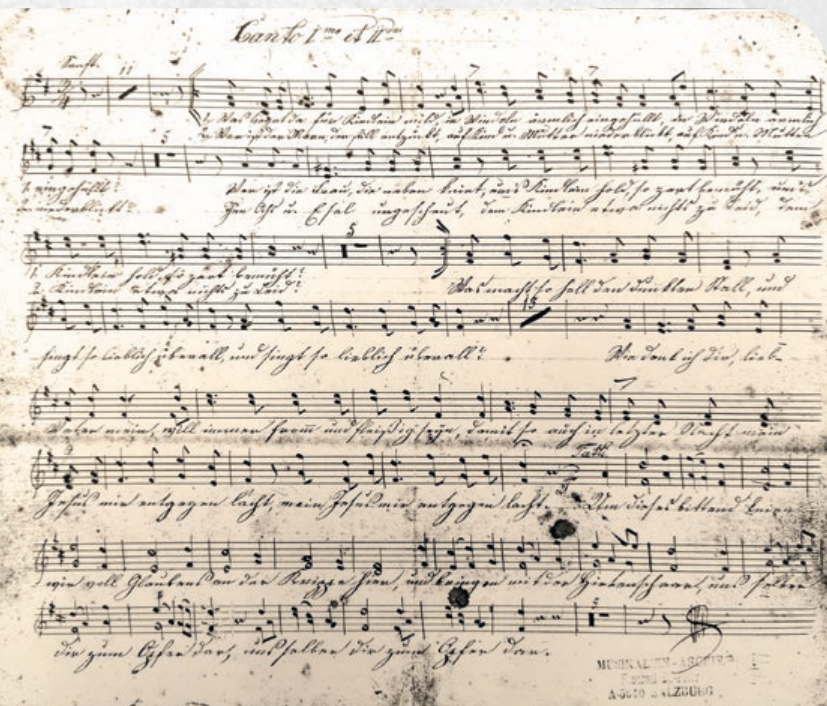 Canto I mo et II do
Sanft.
11
1. Was liegt da für Kindlein mild, in Windeln ärmlich eingehüllt, in Windeln ärmlich
2. Wer ist der Mann, der still entzückt, auf Kind u. Mutter niederblickt, auf Kind u. Mutter
5
1. eingehüllt? Wer ist die Frau, die neben kniet, um's Kindlein hold, so zart bemüht, um's
2. niederblickt? Ihr Ochs u. Esel ungescheut, dem Kindlein etwa nichts zu Leid, dem
5
1. Kindlein hold, so zart bemüht?
2. Kindlein etwa nichts zu Leid? Was macht so hell den dunklen Stall, und
15
singt so lieblich überall, und singt so lieblich überall? Wie dank ich dir, lieb
Vater mein, will immer fromm und fleißig seyn, damit so auch in letzter Nacht mein
Tutti
Jesus mir entgegen lacht, mein Jesus mir entgegen lacht. Um dieses bittend knien
wir voll Glaubens an der Krippe hier, und bringen mit der Hirtenschaar, uns selber
dir zum Opfer dar, uns selber dir zum Opfer dar.
MUSIKALIEN-ARCHIV
A-5010 SALZBURG